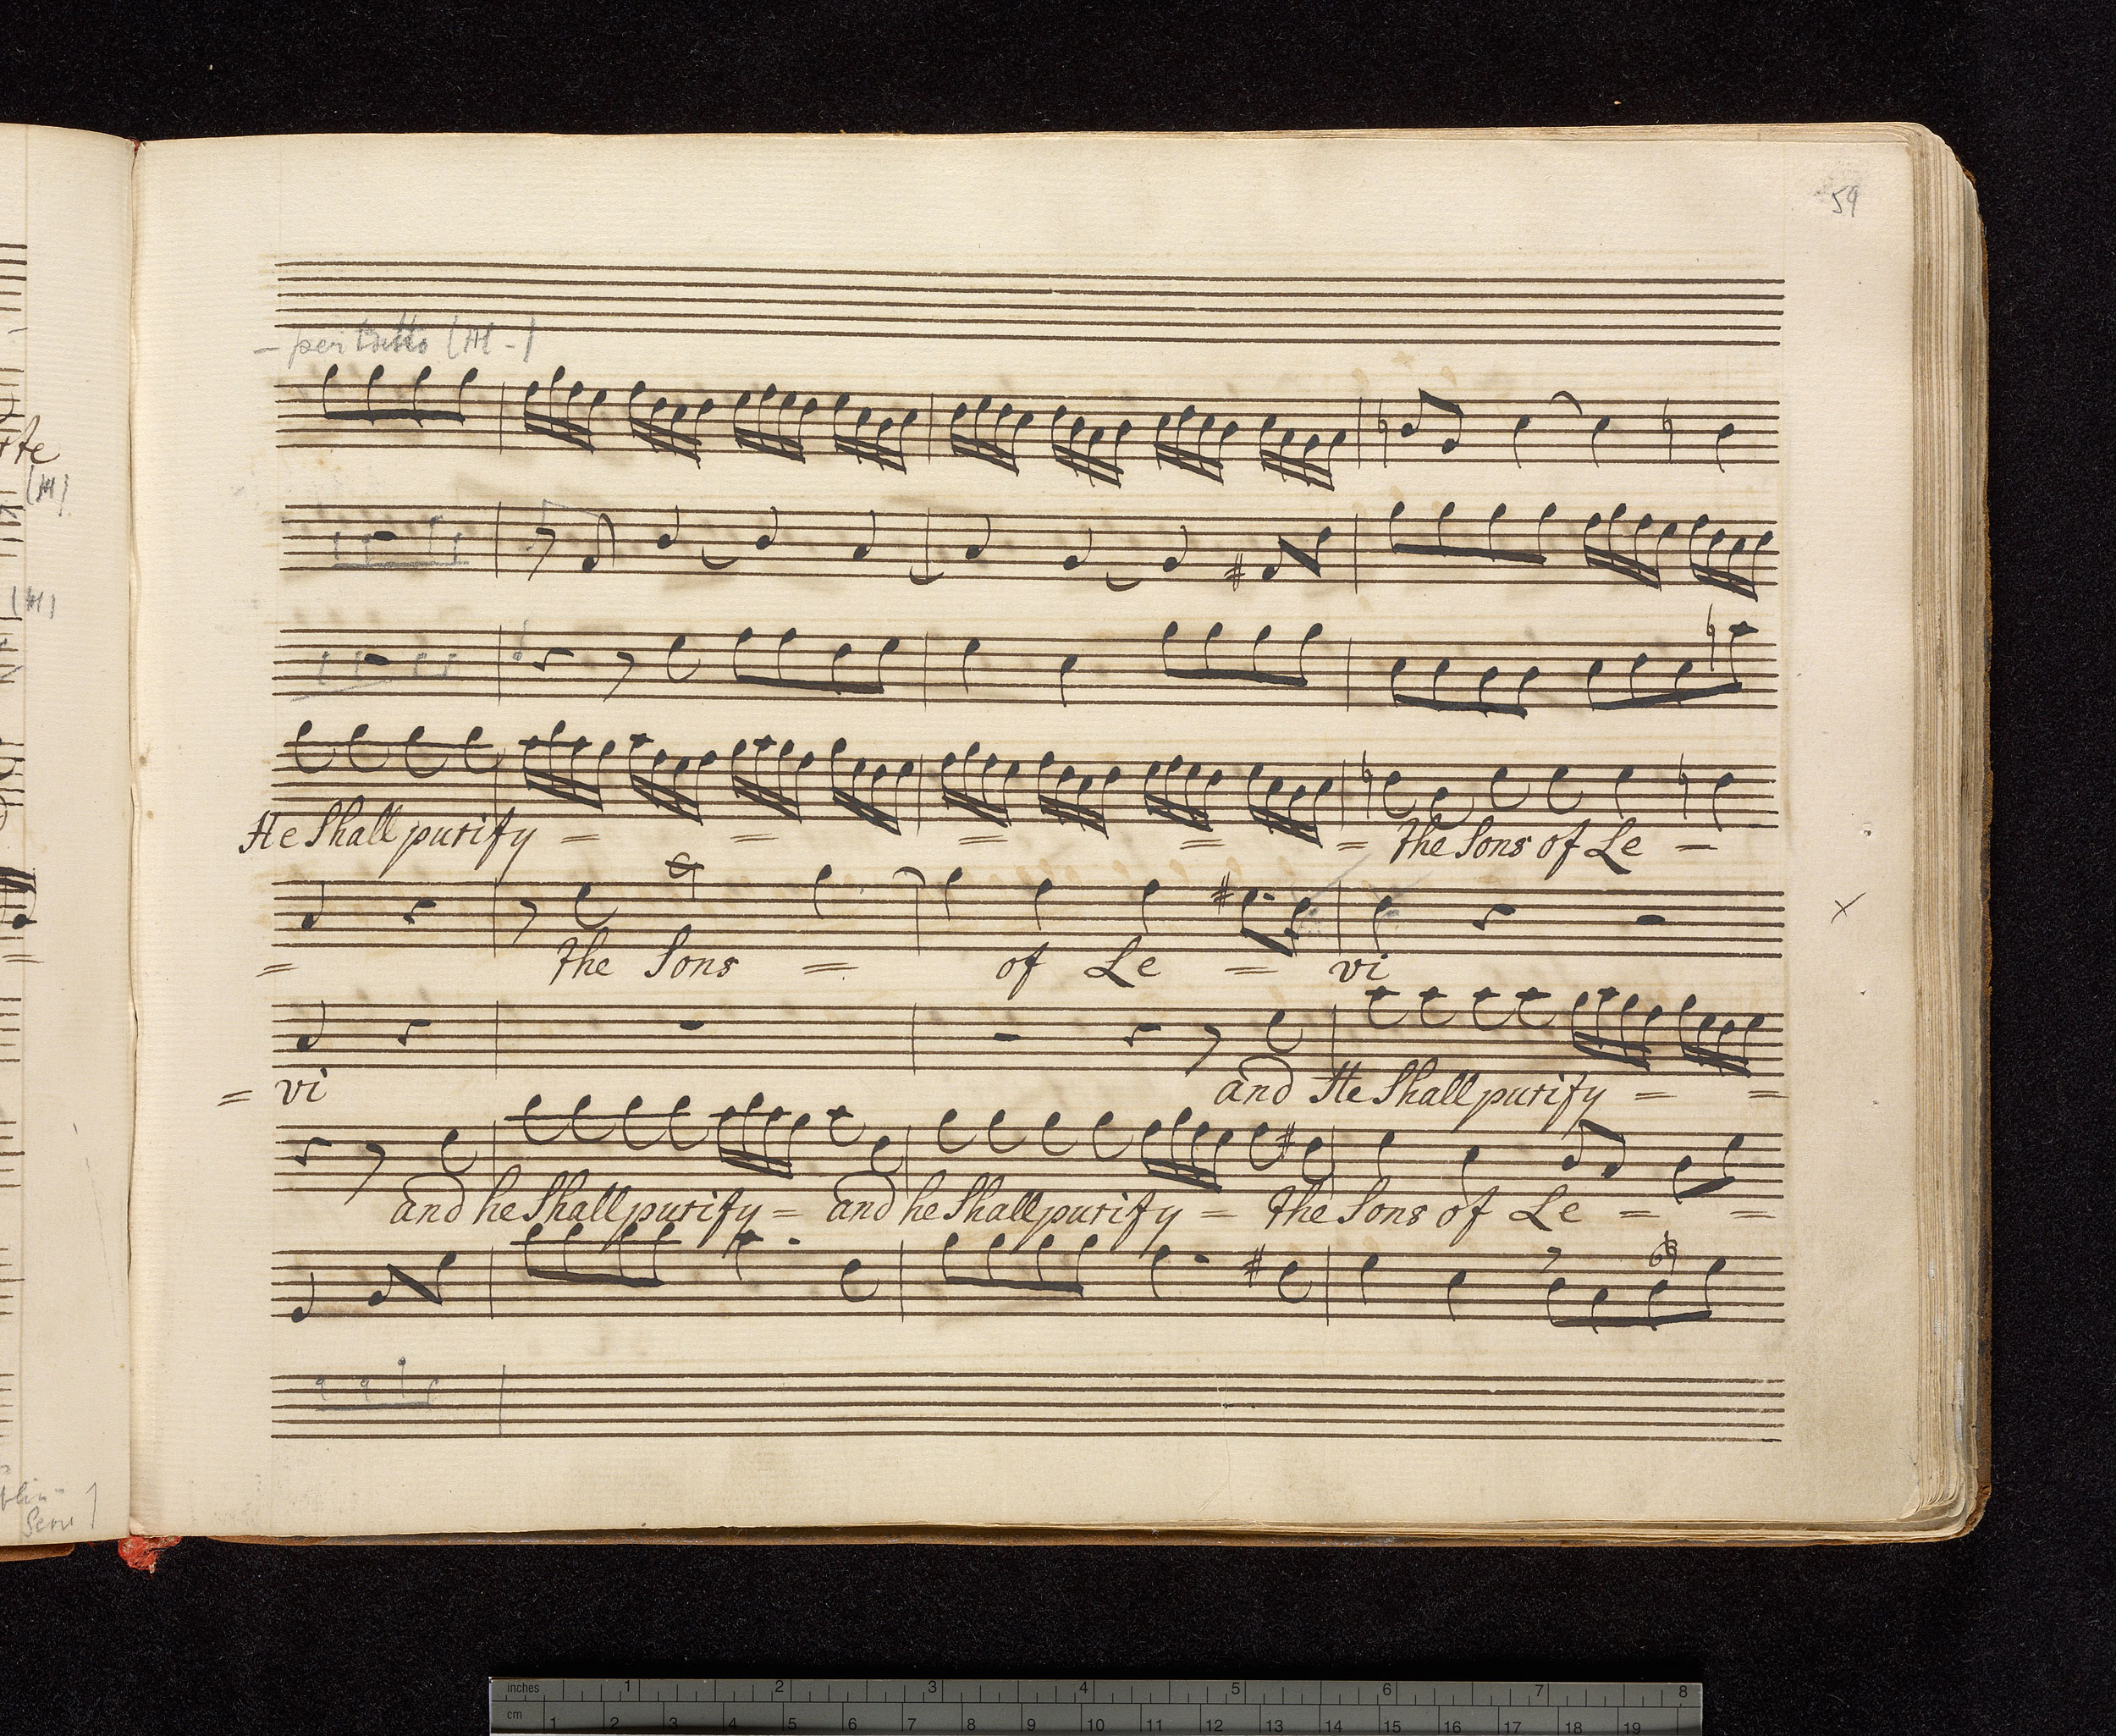 59
- per tutto (M -)
rte
(M)
(M)
He Shall purify = = = = = the Sons of Le =
= the Sons = of Le = vi
x
= vi and He Shall purify = =
and he Shall purify = and he Shall purify = the Sons of Le = =
7 6
inches 1 2 3 4 5 6 7 8
cm 1 2 3 4 5 6 7 8 9 10 11 12 13 14 15 16 17 18 19